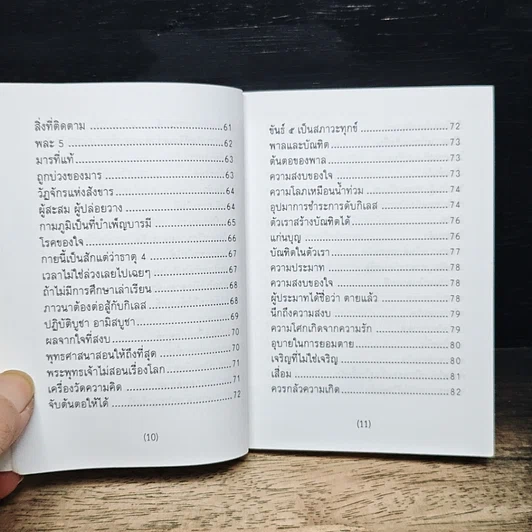 สิ่งที่ติดตาม 61
พละ 5 62
มารที่แท้ 63
ถูกบ่วงของมาร 63
วัฏจักรแห่งสังขาร 64
ผู้สะสม ผู้ปล่อยวาง 64
กามภูมิเป็นที่บำเพ็ญบารมี 65
โรคของใจ 66
กายนี้เป็นสักแต่ว่าธาตุ 4 66
เวลาไม่ใช่ล่วงเลยไปเฉยๆ 67
ถ้าไม่มีการศึกษาเล่าเรียน 68
ภาวนาต้องต่อสู้กับกิเลส 68
ปฏิบัติบูชา อามิสบูชา 69
ผลจากใจที่สงบ 70
พุทธศาสนาสอนให้ถึงที่สุด 70
พระพุทธเจ้าไม่สอนเรื่องโลก 71
เครื่องวัดความคิด 71
จับต้นตอให้ได้ 72
(10)
ขันธ์ ๕ เป็นสภาวะทุกข์ 72
พาลและบัณฑิต 73
ต้นตอของพาล 73
ความสงบของใจ 73
ความโลภเหมือนน้ำท่วม 74
อุปมาการชำระการดับกิเลส 74
ตัวเราสร้างบัณฑิตได้ 76
แก่นบุญ 76
บัณฑิตในตัวเรา 77
ความประมาท 78
ความสงบของใจ 78
ผู้ประมาทได้ชื่อว่า ตายแล้ว 78
นึกถึงความสงบ 79
ความโศกเกิดจากความรัก 79
อุบายในการยอมตาย 80
เจริญที่ไม่ใช่เจริญ 80
เสื่อม 81
ควรกลัวความเกิด 82
(11)